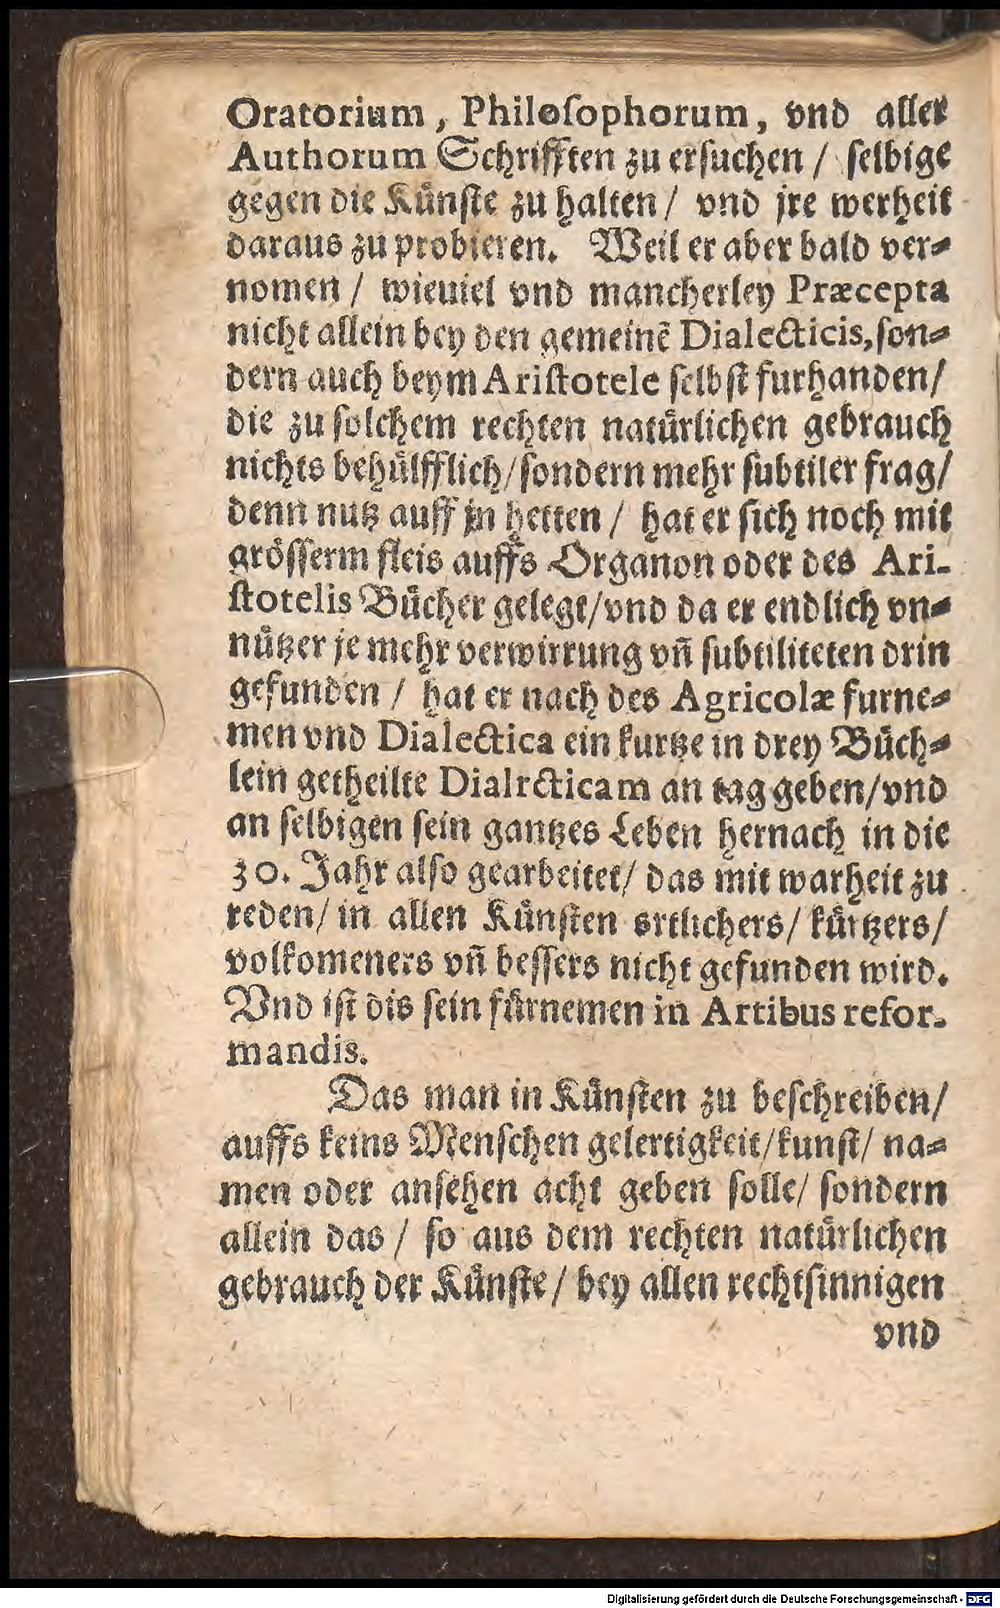 Oratorium, Philoſophorum, vnd aller
Authorum Schrifften zu erſuchen / ſelbige
gegen die Kuͤnſte zu halten / vnd jre werheit
daraus zu probieren. Weil er aber bald ver⸗
nomen / wieuiel vnd mancherley Præcepta
nicht allein bey den gemeinē Dialecticis, ſon⸗
dern auch beym Ariſtotele ſelbſt furhanden/
die zu ſolchem rechten natuͤrlichen gebrauch
nichts behuͤlfflich/ſondern mehr ſubtiler frag/
denn nutz auff jn hetten / hat er ſich noch mit
groͤſſerm fleis auffs Organon oder des Ari-
ſtotelis Buͤcher gelegt/vnd da er endlich vn⸗
nuͤtzer je mehr verwirrung vn̄ ſubtiliteten drin
gefunden / hat er nach des Agricolæ furne⸗
men vnd Dialectica ein kurtze in drey Buͤch⸗
lein getheilte Dialrcticam an tag geben/vnd
an ſelbigen ſein gantzes Leben hernach in die
30. Jahr alſo gearbeitet/ das mit warheit zu
reden/ in allen Kuͤnſten ortlichers/ kuͤrtzers/
volkomeners vn̄ beſſers nicht gefunden wird.
Vnd iſt dis ſein fuͤrnemen in Artibus refor-
mandis.
Das man in Kuͤnſten zu beſchreiben/
auffs keins Menſchen gelertigkeit/kunſt/ na⸗
men oder anſehen acht geben ſolle/ ſondern
allein das / ſo aus dem rechten natuͤrlichen
gebrauch der Kuͤnſte / bey allen rechtſinnigen
vnd
Digitalisierung gefördert durch die Deutsche Forschungsgemeinschaft - DFG